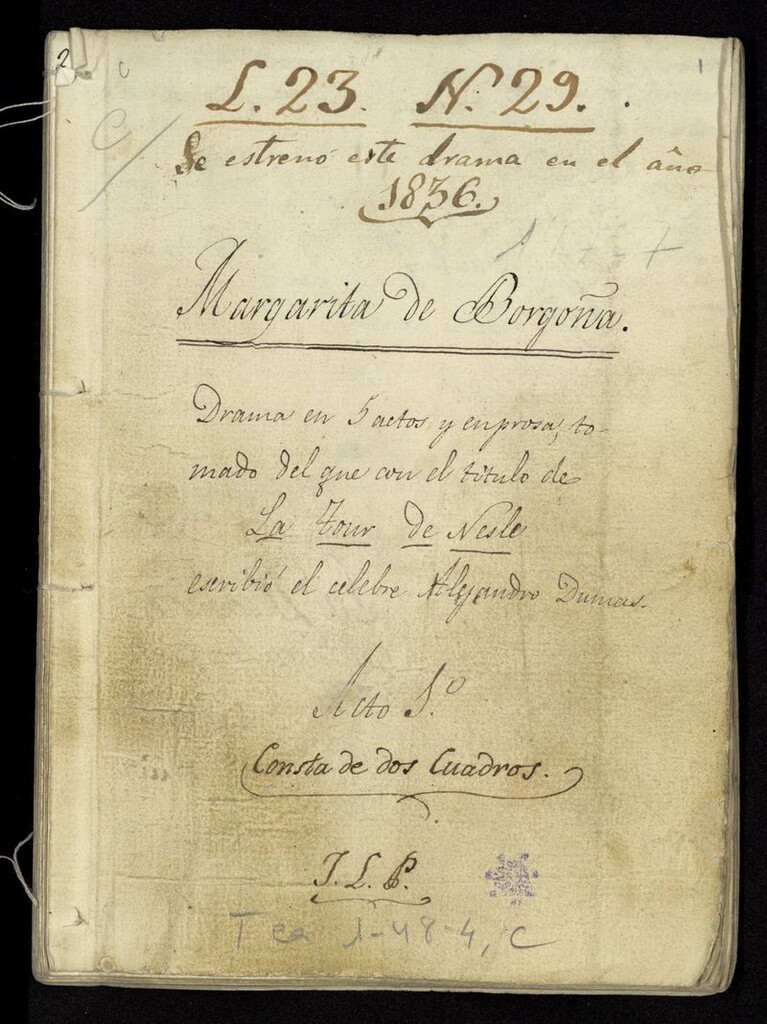 2
1
L. 23. N.º 29.
C/
Se estrenó este drama en el año
1836.
Margarita de Borgoña.
Drama en 5 actos y en prosa, to-
mado del que con el titulo de
La Tour de Nesle
escribió el celebre Alejandro Dumas.
Acto 1.º
Consta de dos Cuadros.
J. L. P.
Tea 1-48-4, C